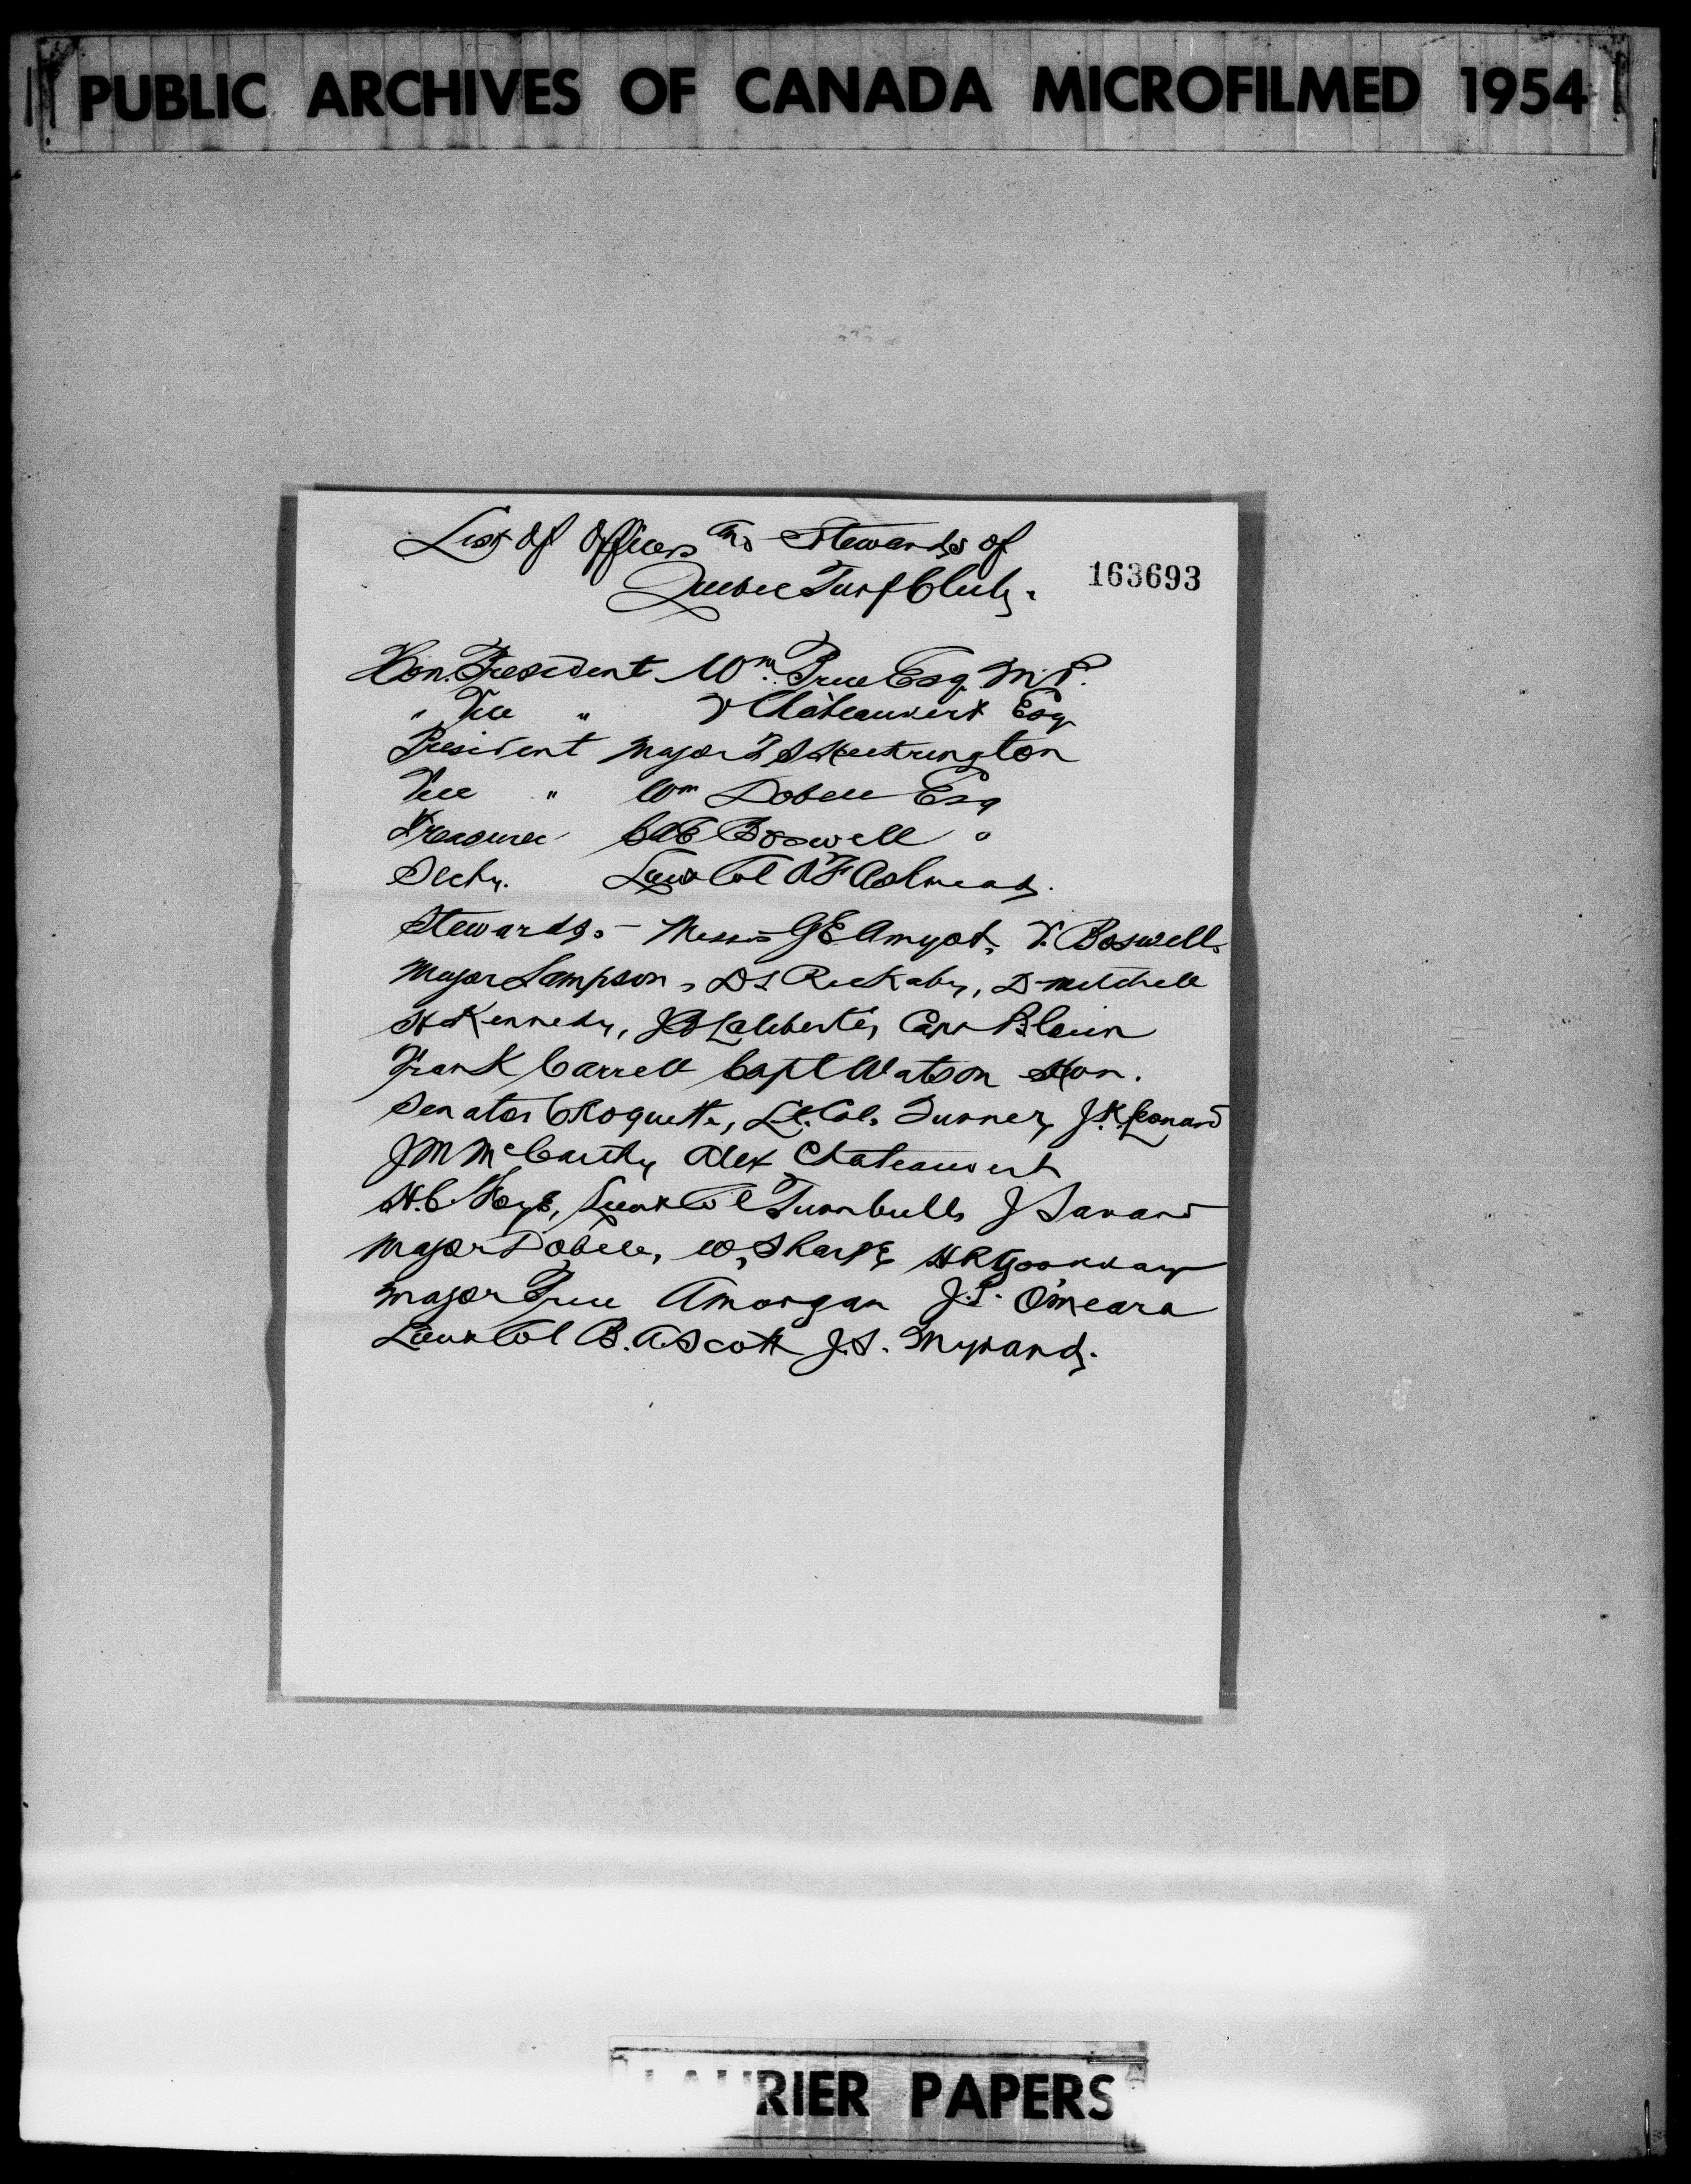 PUBLIC ARCHIVES OF CANADA MICROFILMED 1954
List of Officers and Stewards of
163693
Quebec Turf Club.
Hon. President Wm. Price Esq. M.P.
" Vice " V Châteauvert Esq
President Major T S Hetherington
Vice " Wm Dobell Esq
Treasurer C E Boswell "
Secty. Lieut Col F Ashmead.
Stewards. - Messrs G E Amyot, V. Boswell,
Major Sampson, D S Rickaby, D Mitchell
H Kennedy, J B Laliberté, Capt Blouin
Frank Carrell Capt Watson Hon.
Senator Choquette, Lt. Col. Turner, J. K. Leonard
J M McCarthy Alex Chateauvert
H. C. Lieut Col Turnbull, J Savard
Major Dobell, W, Sharpe H R Goodday
Major Price A Morgan J. P. O'Meara
Lieut Col B. A Scott J. S. Myrand.
LAURIER PAPERS